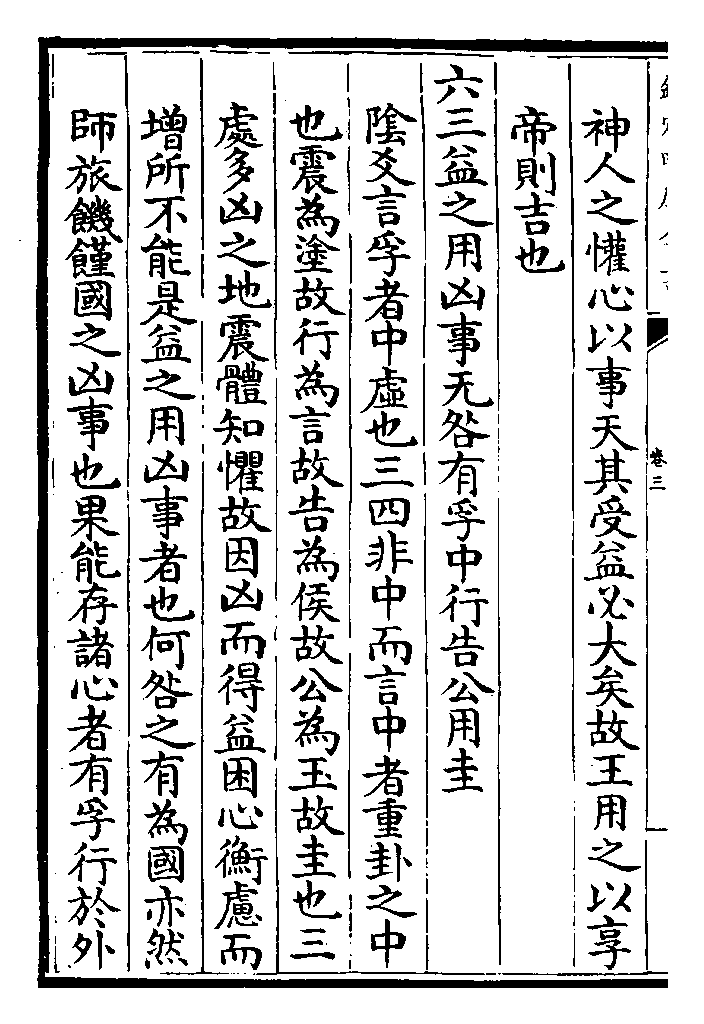 卷三
神人之懽心以事天其受益必大矣故王用之以享
帝則吉也
六三益之用凶事无咎有孚中行告公用圭
陰爻言孚者中虛也三四非中而言中者重卦之中
也震為塗故行為言故告為侯故公為玉故圭也三
處多凶之地震體知懼故因凶而得益困心衡慮而
增所不能是益之用凶事者也何咎之有為國亦然
師旅饑饉國之凶事也果能存諸心者有孚行於外